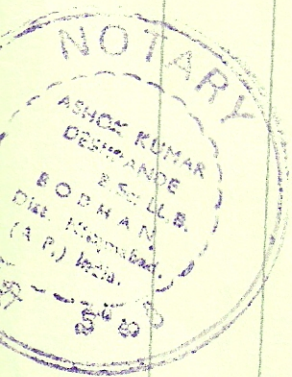 NOTARY
ASHOK KUMAR
DESHPANDE
B.Sc. LL.B.
BODHAN
Dist. Nizamabad,
(A.P.) India.